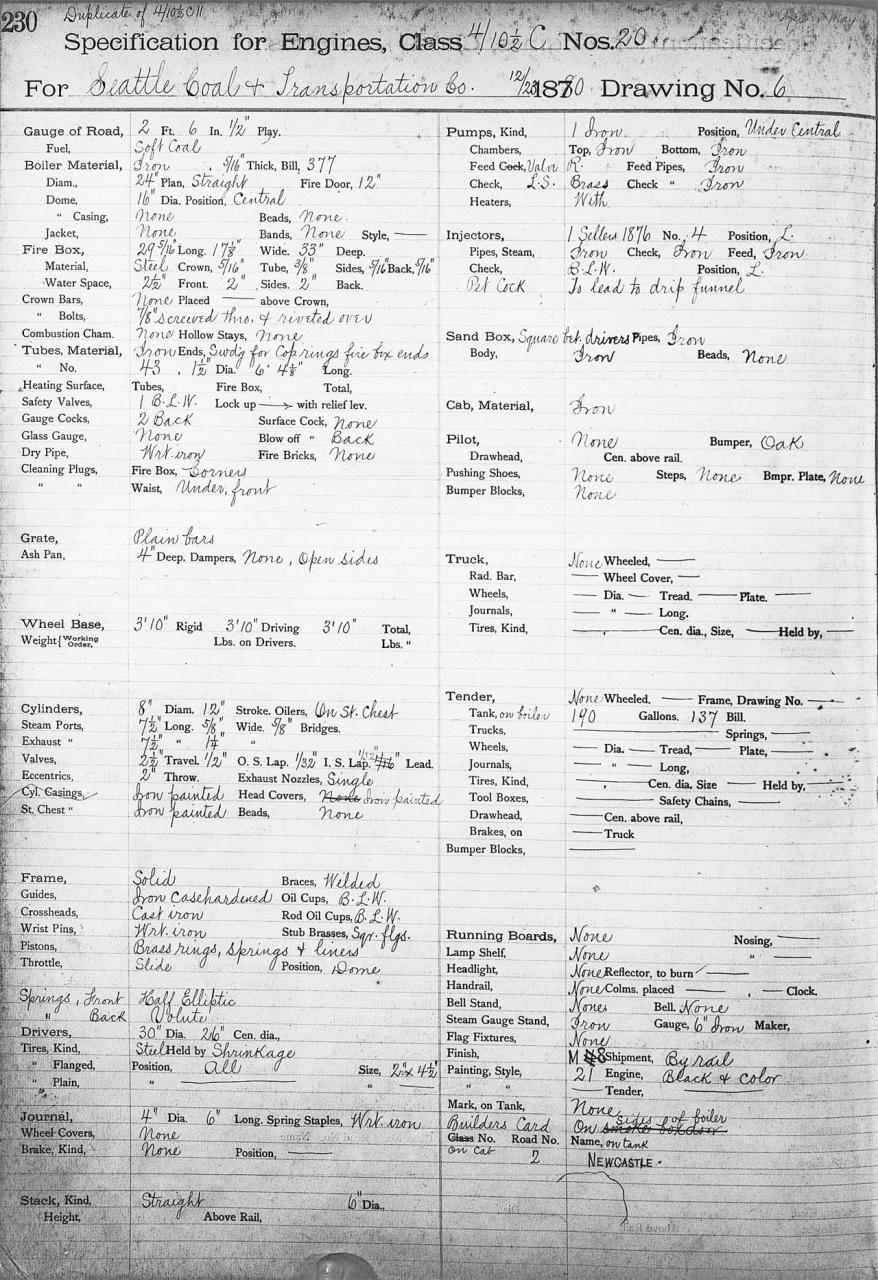 230
Duplicate of 4/10½ C 11
Specification for Engines, Class 4/10½ C Nos. 20
For Seattle Coal & Transportation Co. 12/23 1880 Drawing No. 6
Gauge of Road, 2 Ft. 6 In. ½" Play.
Fuel, Soft Coal
Boiler Material, Iron, 5/16" Thick, Bill, 377
Diam., 24" Plan, Straight Fire Door, 12"
Dome, 16" Dia. Position, Central
" Casing, None Beads, None.
Jacket, None Bands, None Style, —
Fire Box, 29 5/16" Long. 17⅞" Wide. 33" Deep.
Material, Steel Crown, 5/16" Tube, 3/8" Sides, 5/16" Back, 5/16"
Water Space, 2½" Front. 2" Sides. 2" Back.
Crown Bars, None Placed — above Crown,
" Bolts, 7/8" screwed thro. & riveted over
Combustion Cham. None Hollow Stays, None
Tubes, Material, Iron Ends, Swdg for Cop rings fire box ends
" No. 43, 1½" Dia. 6' 4⅛" Long.
Heating Surface, Tubes, Fire Box, Total,
Safety Valves, 1 B.L.W. Lock up → with relief lev.
Gauge Cocks, 2 Back Surface Cock, None
Glass Gauge, None Blow off " Back
Dry Pipe, Wrt. iron Fire Bricks, None
Cleaning Plugs, Fire Box, Corners
" " Waist, Under, front
Grate, Plain bars
Ash Pan, 4" Deep. Dampers, None, Open sides
Wheel Base, 3' 10" Rigid 3' 10" Driving 3' 10" Total,
Weight { Working Order, Lbs. on Drivers. Lbs. "
Cylinders, 8" Diam. 12" Stroke. Oilers, On St. Chest
Steam Ports, 7½" Long. 5/8" Wide. 5/8" Bridges.
Exhaust " 7½" " 1¼" "
Valves, 2½" Travel. ½" O. S. Lap. 1/32" I. S. Lap. Lead.
Eccentrics, 2" Throw. Exhaust Nozzles, Single
Cyl. Casings, Iron painted Head Covers, None Iron painted
St. Chest " Iron painted Beads, None
Frame, Solid Braces, Welded
Guides, Iron Casehardened Oil Cups, B.L.W.
Crossheads, Cast iron Rod Oil Cups, B.L.W.
Wrist Pins, Wrt. iron Stub Brasses, Sqr. flgs.
Pistons, Brass rings, springs & liners
Throttle, Slide Position, Dome
Springs, Front Half Elliptic
" Back Volute
Drivers, 30" Dia. 26" Cen. dia.,
Tires, Kind, Steel Held by Shrinkage
" Flanged, Position, All Size, 2" x 4½"
" Plain, " — "
Journal, 4" Dia. 6" Long. Spring Staples, Wrt. iron
Wheel Covers, None
Brake, Kind, None Position, —
Stack, Kind, Straight 6" Dia.,
Height, Above Rail,
Pumps, Kind, 1 Iron. Position, Under Central
Chambers, Top, Iron Bottom, Iron
Feed Cock, Valve R. Feed Pipes, Iron
Check, L.S. Brass Check " Iron
Heaters, With
Injectors, 1 Sellers 1876 No. 4 Position, L.
Pipes, Steam, Iron Check, Iron Feed, Iron
Check, B.L.W. Position, L.
Pet Cock To lead to drip funnel
Sand Box, Square bet. drivers Pipes, Iron
Body, Iron Beads, None
Cab, Material, Iron
Pilot, None Bumper, Oak
Drawhead, Cen. above rail.
Pushing Shoes, None Steps, None Bmpr. Plate, None
Bumper Blocks, None
Truck, None Wheeled, —
Rad. Bar, — Wheel Cover, —
Wheels, — Dia. — Tread. — Plate. —
Journals, — " — Long.
Tires, Kind, —, — Cen. dia., Size, — Held by, —
Tender, None Wheeled. — Frame, Drawing No. —
Tank, on boiler 190 Gallons. 137 Bill.
Trucks, — Springs, —
Wheels, — Dia. — Tread, — Plate, —
Journals, — " — Long,
Tires, Kind, —, Cen. dia. Size — Held by, —
Tool Boxes, — Safety Chains, —
Drawhead, — Cen. above rail,
Brakes, on — Truck
Bumper Blocks, —
Running Boards, None Nosing, —
Lamp Shelf, None " —
Headlight, None Reflector, to burn —
Handrail, None Colms. placed —, — Clock.
Bell Stand, None Bell. None
Steam Gauge Stand, Iron Gauge, 6" Iron Maker,
Flag Fixtures, None
Finish, M 8 Shipment, By rail
Painting, Style, 21 Engine, Black & color
" " Tender, —
Mark, on Tank, None
Builders Card On smoke box door Sides of boiler
Class No. Road No. Name, on tank
on Cab 2 NEWCASTLE.